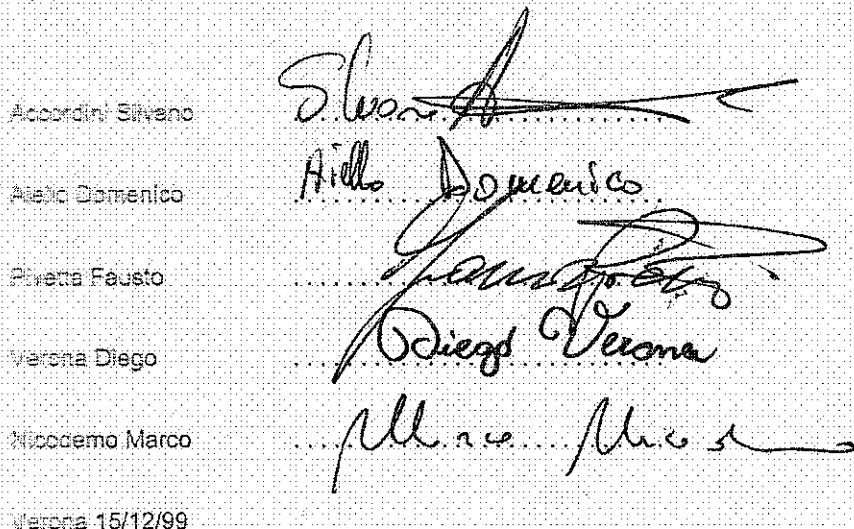 Accordini Silvano Silvano A
Aiello Domenico Aiello Domenico
Pivetta Fausto
Verona Diego Diego Verona
Nicodemo Marco Marco
Verona 15/12/99